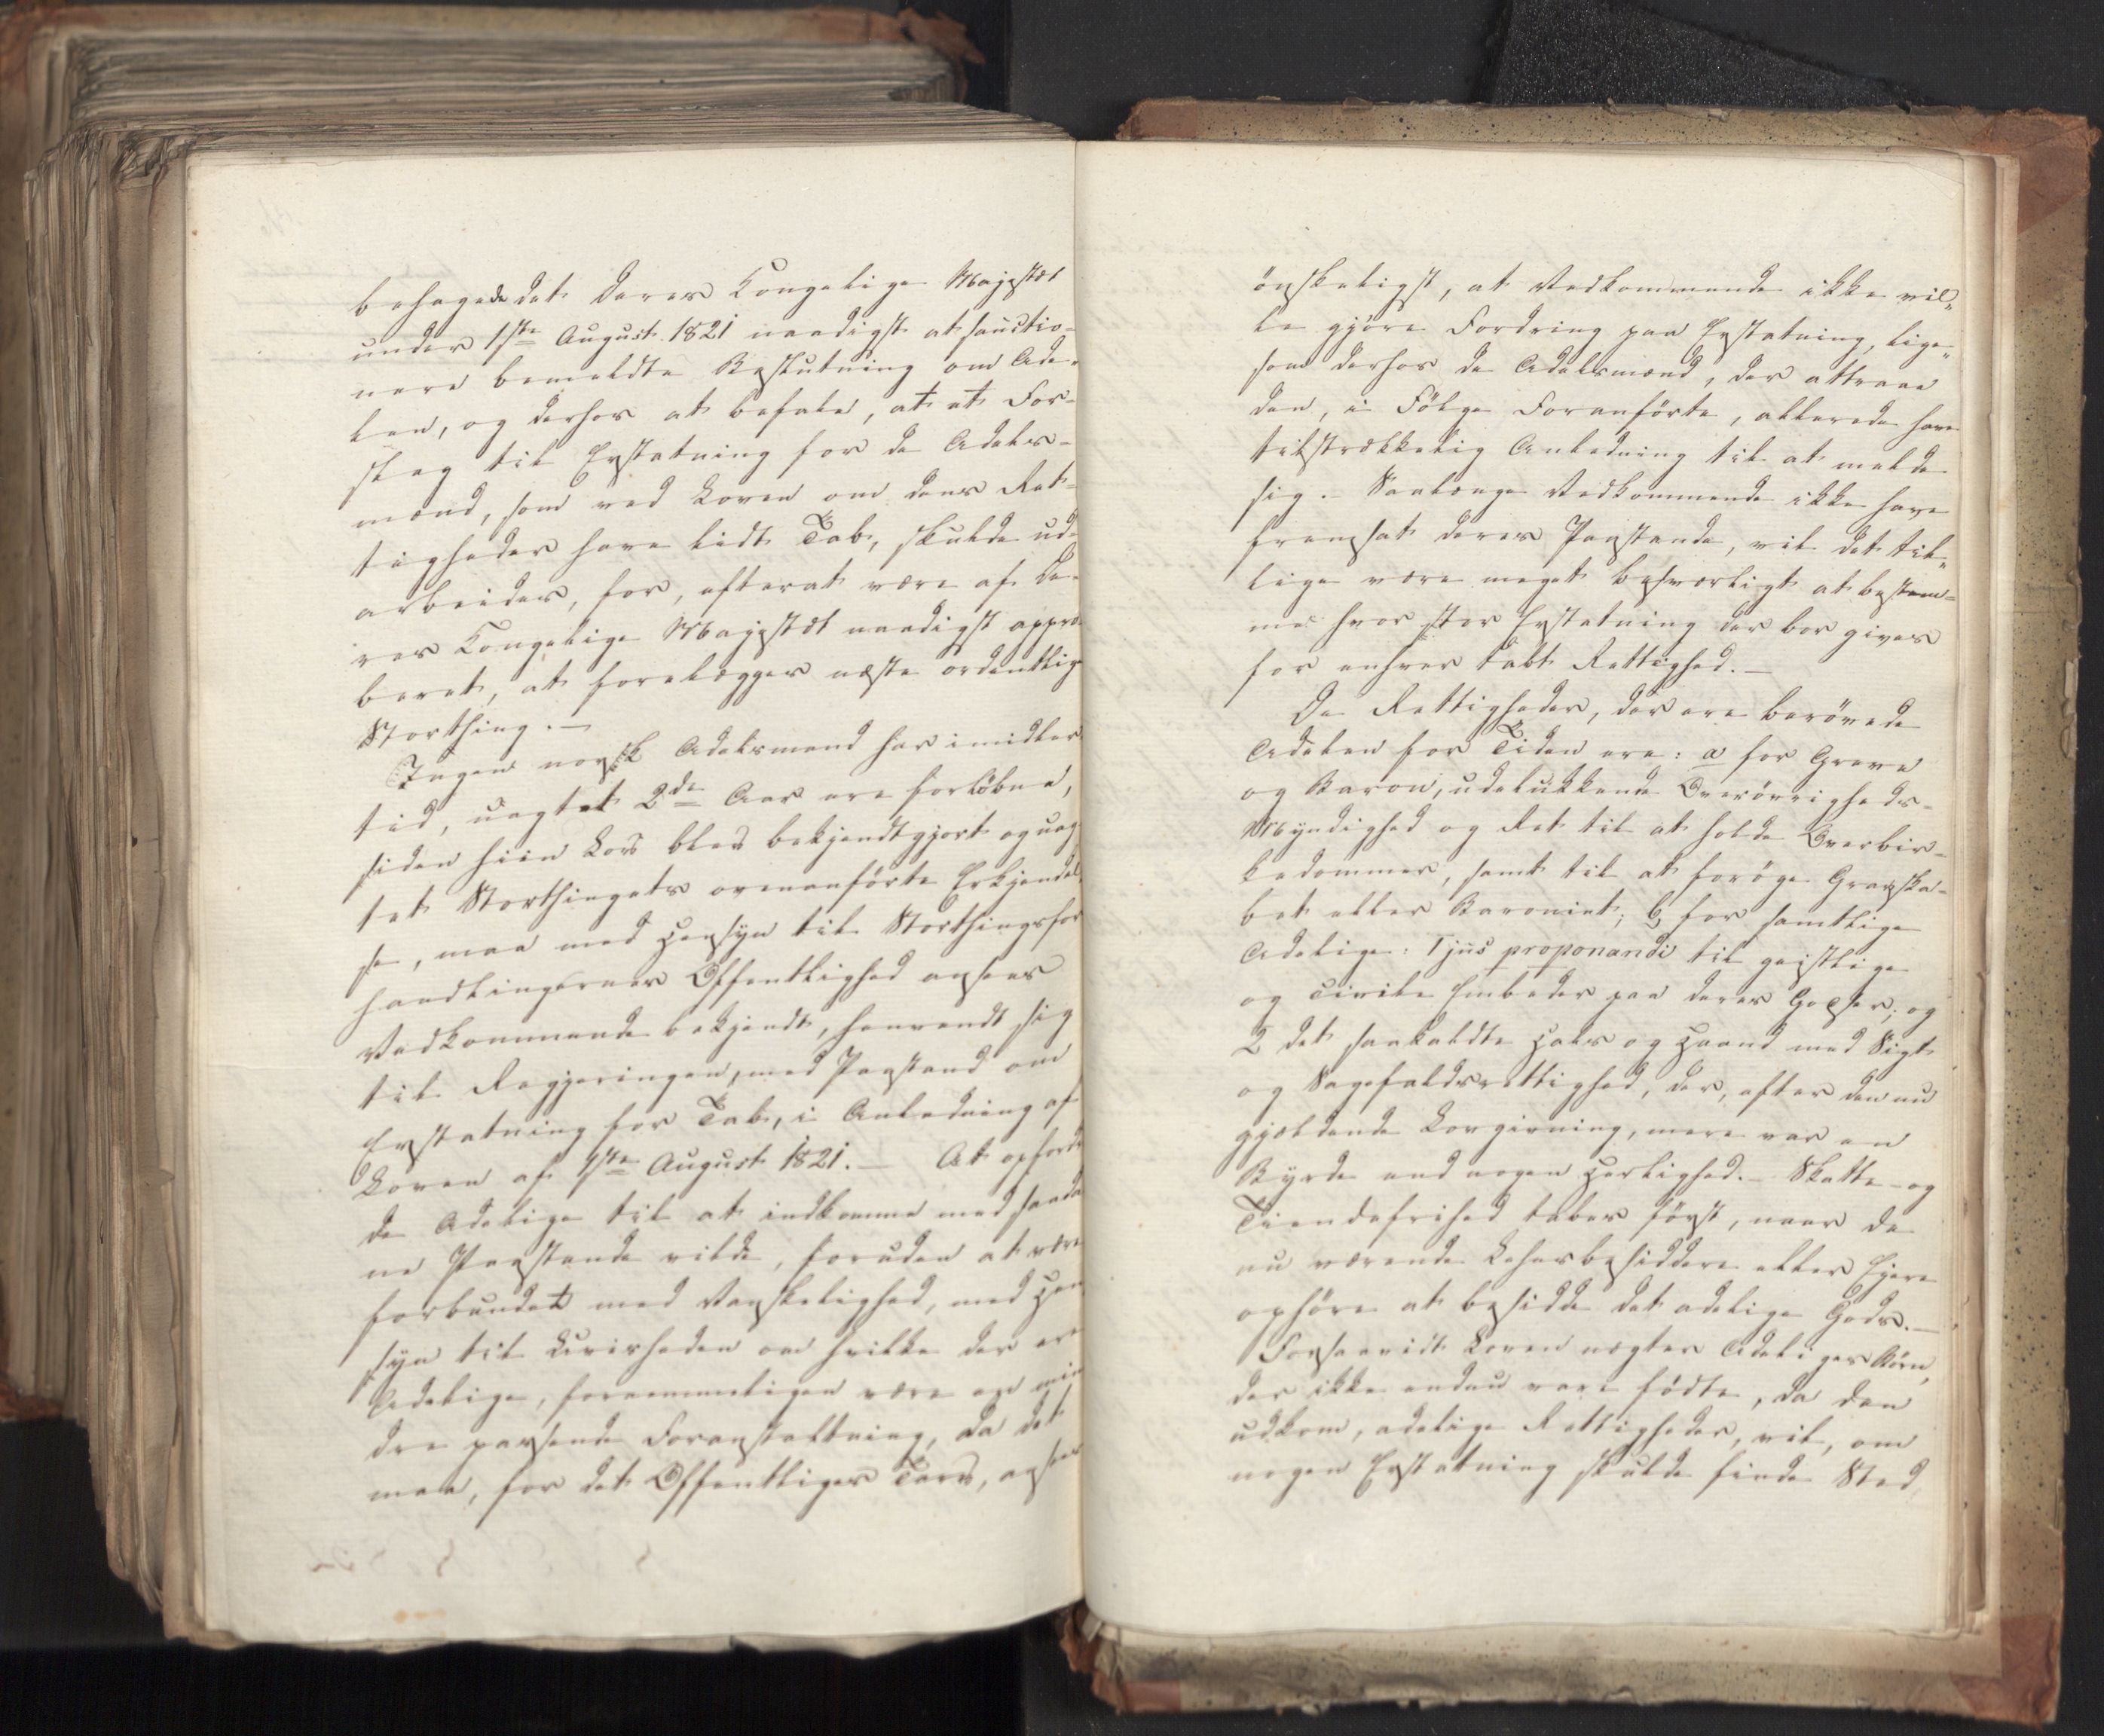 behagede det Deres Kongelige Majestæt
under 1ste August 1821 naadigst at sanctio-
nere bemeldte Beslutning om Ade-
len, og derhos at befale, at et For-
slag til Erstatning for de Adels-
mænd, som ved Loven om dens Ret-
tigheder have lidt Tab, skulde ud-
arbeides, for, efterat være af De-
res Kongelige Majestæt naadigst appro-
beret, at forelægges næste ordentlige
Storthing. —
Ingen norsk Adelsmand har imidler-
tid, uagtet 2de Aar ere forløbne,
siden hiin Lov blev bekjendtgjort og uag-
tet Storthingets ovenanførte Erkjendel-
se, maa med Hensyn til Storthingsfor-
handlingernes Offentlighed ansees
Vedkommende bekjendt, henvendt sig
til Regjeringen, med Paastand om
Erstatning for Tab, i Anledning af
Loven af 1ste August 1821. — At opfordre
de Adelige til at indkomme med saada-
ne Paastande vilde, foruden at være
forbundet med Vanskelighed, med Hen-
syn til Uvisheden om hvilke der ere
Adelige, fornemmeligen være en min-
dre passende Foranstaltning, da det
maa, for det Offentliges Tarv, ansees
ønskeligst, at Vedkommende ikke vil-
le gjøre Fordring paa Erstatning, lige-
som derhos de Adelsmænd, der attraae
den, i Følge Foranførte, allerede have
tilstrækkelig Anledning til at melde
sig. – Saalænge Vedkommende ikke have
fremsat deres Paastande, vil det til-
lige være meget besværligt at bestem-
me hvor stor Erstatning der bør gives
for enhver tabt Rettighed. —
De Rettigheder, der ere berøvede
Adelen for Tiden ere: a for Greve
og Baron, udelukkende Overøvrigheds-
Myndighed og Ret til at holde Overbir-
kedommer, samt til at forøge Grevska-
bet eller Baroniet; b, for samtlige
Adelige: 1 jus proponendi til geistlige
og civile Embeder paa deres Godser; og
2 det saakaldte Hals og Haand med Sigt
og Sagefaldsrettighed, der, efter den nu
gjældende Lovgivning, mere var en
Byrde end nogen Herlighed. – Skatte- og
Tiendefrihed tabes først, naar de
nu værende Lehnsbesiddere eller Eiere
ophøre at besidde det adelige Gods. —
Forsaavidt Loven nægter Adeliges Børn,
der ikke endnu vare fødte, da den
udkom, adelige Rettigheder, vil, om
nogen Erstatning skulde finde Sted,